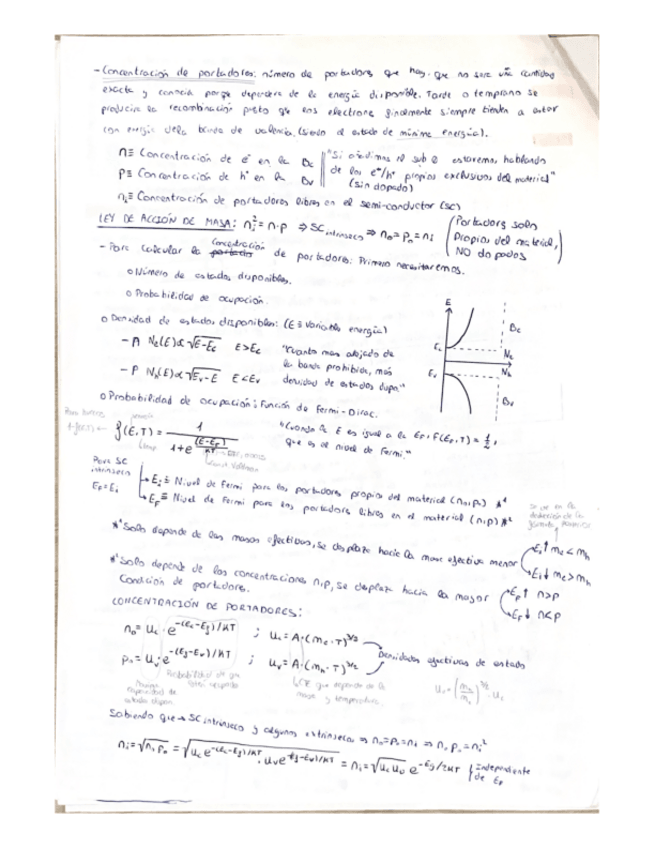 - Concentración de portadores: número de portadores que hay, que no sera una cantidad
exacta y conocida porque dependera de la energía disponible. Tarde o temprano se
producira la recombinación puesto que los electrones finalmente siempre tienden a estar
con energía de la banda de valencia, (siendo el estado de mínima energía).
n ≡ Concentración de e⁻ en la Bc
p ≡ Concentración de h⁺ en la Bv
"Si añadimos el sub 0 estaremos hablando
de los e⁻/h⁺ propios exclusivos del material"
(sin dopado)
nᵢ ≡ Concentración de portadores libres en el semi-conductor (SC)
LEY DE ACCIÓN DE MASA: nᵢ² = n·p ⇒ SC intrínseco ⇒ n₀ = p₀ = nᵢ
(Portadores solo
propios del material,
NO dopados)
- Para calcular la concentración de portadores: Primero necesitaremos.
o Número de estados disponibles.
o Probabilidad de ocupación.
o Densidad de estados disponibles: (E ≡ Variable energía)
- n Nc(E) ∝ √E-Ec E>Ec
- p Nh(E) ∝ √Ev-E E<Ev
"Cuanto mas alejado de
la banda prohibida, más
densidad de estados dispo."
E
Bc
Ec
Nc
Ev
Nh
Bv
o Probabilidad de ocupación: Función de Fermi-Dirac.
f(E,T) = 1 / (1+e^((E-EF)/KT))
"Cuando la E es igual a la EF, F(EF,T) = 1/2,
que es el nivel de Fermi."
Para SC
intrínseco
EF=Ei
Ei ≡ Nivel de Fermi para los portadores propios del material (n₀,p₀) *¹
EF ≡ Nivel de Fermi para los portadores libres en el material (n,p) *²
*¹ Solo depende de las masas efectivas, se desplaza hacia la masa efectiva menor
Ei↑ me<mh
Ei↓ me>mh
*² Solo depende de las concentraciones n,p, se desplaza hacia la mayor
Condición de portadores.
EF↑ n>p
EF↓ n<p
CONCENTRACIÓN DE PORTADORES:
n₀ = Uc · e^(-(Ec-Ef)/KT) ; Uc = A·(me·T)^(3/2)
p₀ = Uv · e^(-(Ef-Ev)/KT) ; Uv = A·(mh·T)^(3/2)
Densidades efectivas de estado
Probabilidad de que
este ocupado
CTE que depende de la
masa y temperatura.
Sabiendo que → SC intrínseco y algunos extrínsecos ⇒ n₀=p₀=nᵢ ⇒ n₀ p₀ = nᵢ²
nᵢ = √n₀ p₀ = √Uc e^(-(Ec-Ef)/KT) · Uv e^(-(Ef-Ev)/KT) = nᵢ = √Uc Uv e^(-Eg/2KT)
Independiente
de EF